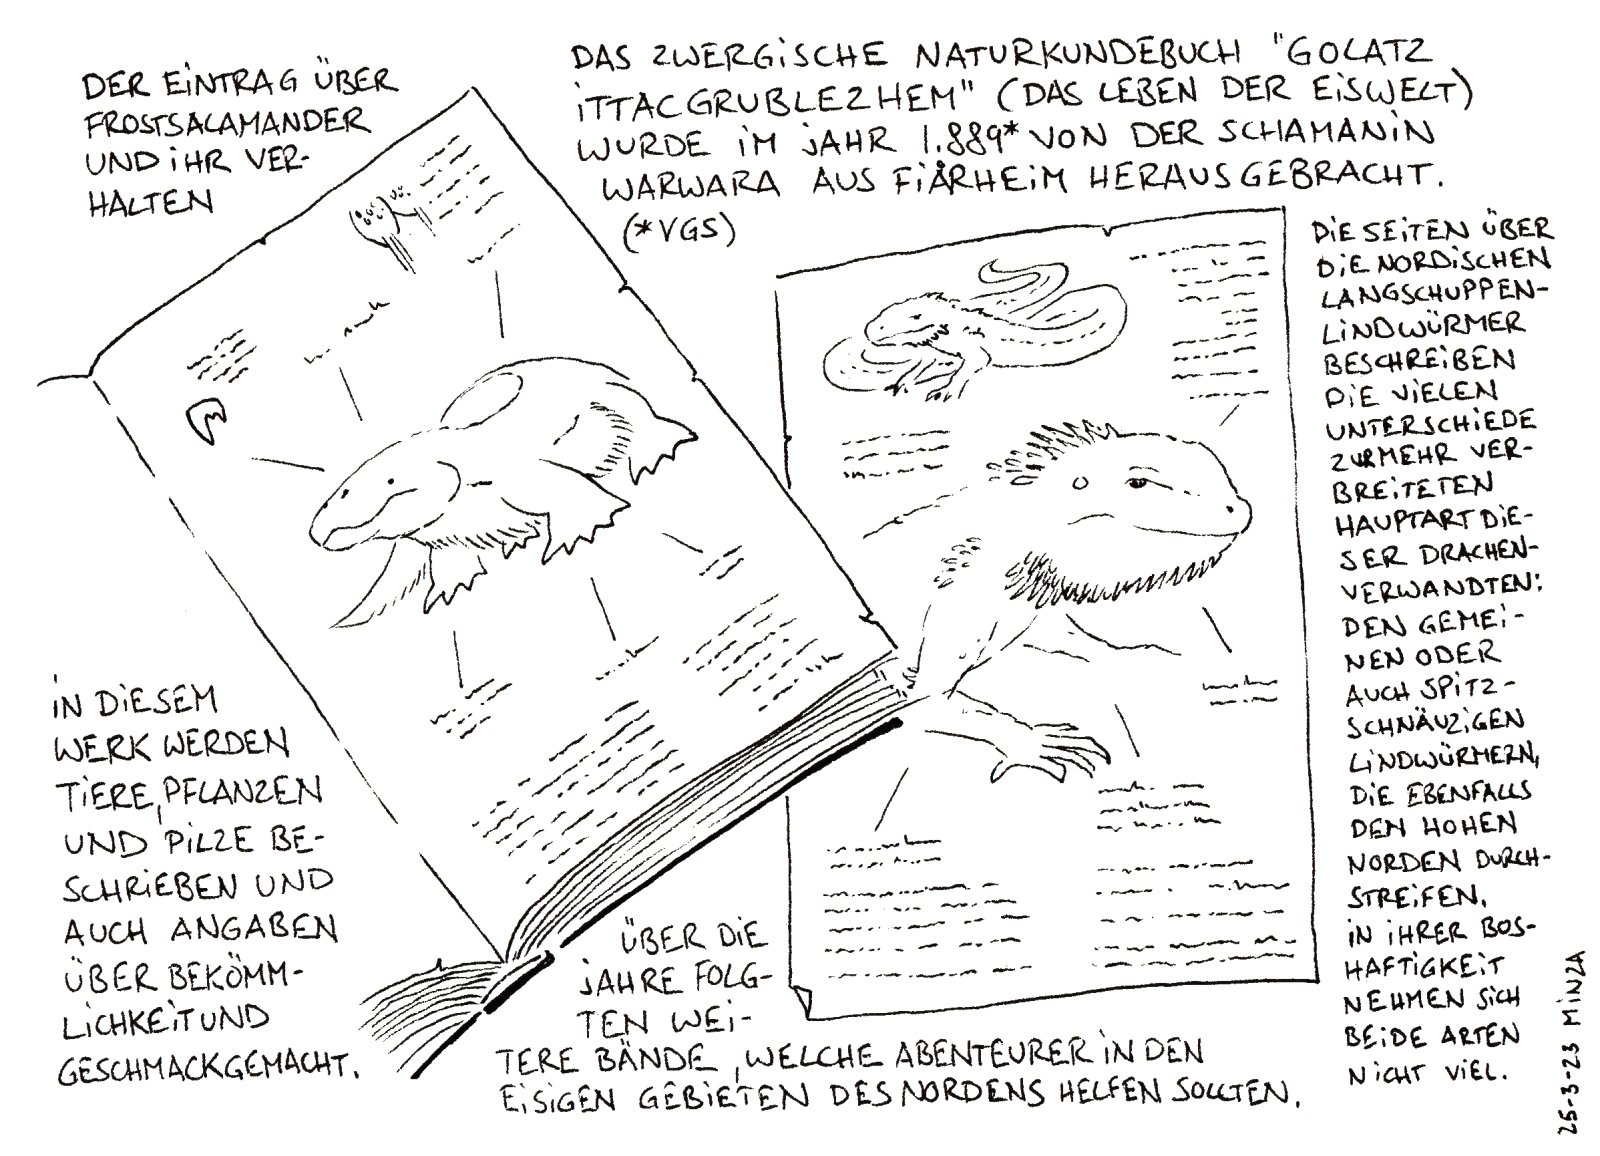 DER EINTRAG ÜBER
FROSTSALAMANDER
UND IHR VER-
HALTEN
DAS ZWERGISCHE NATURKUNDEBUCH "GOLATZ
ITTACGRUBLEZHEM" (DAS LEBEN DER EISWELT)
WURDE IM JAHR 1.889* VON DER SCHAMANIN
WARWARA AUS FIÅRHEIM HERAUSGEBRACHT.
(*VGS)
DIE SEITEN ÜBER
DIE NORDISCHEN
LANGSCHUPPEN-
LINDWÜRMER
BESCHREIBEN
DIE VIELEN
UNTERSCHIEDE
ZUR MEHR VER-
BREITETEN
HAUPTART DIE-
SER DRACHEN-
VERWANDTEN:
DEN GEMEI-
NEN ODER
AUCH SPITZ-
SCHNÄUZIGEN
LINDWÜRMERN,
DIE EBENFALLS
DEN HOHEN
NORDEN DURCH-
STREIFEN.
IN IHRER BOS-
HAFTIGKEIT
NEHMEN SICH
BEIDE ARTEN
NICHT VIEL.
IN DIESEM
WERK WERDEN
TIERE, PFLANZEN
UND PILZE BE-
SCHRIEBEN UND
AUCH ANGABEN
ÜBER BEKÖMM-
LICHKEIT UND
GESCHMACK GEMACHT.
ÜBER DIE
JAHRE FOLG-
TEN WEI-
TERE BÄNDE, WELCHE ABENTEURER IN DEN
EISIGEN GEBIETEN DES NORDENS HELFEN SOLLTEN.
25-3-23 MINZA